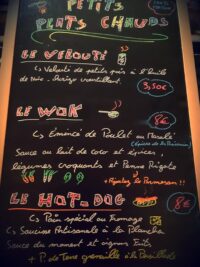 PETITS
PLATS CHAUDS
LE VELOUTÉ
↳ Velouté de petits pois à l'huile
de Noix. Chorizo croustillant.
3,50€
LE WOK
8€
↳ Émincé de Poulet au
Sauce au lait de coco et épices,
légumes croquants et Penne Rigate
+ le Parmesan!!
LE HOT-DOG
8€
↳ Pain spécial au Fromage
↳ Saucisse Artisanale à la Plancha
Sauce du moment et oignons Frits
+ P. de Terre grenaille à la